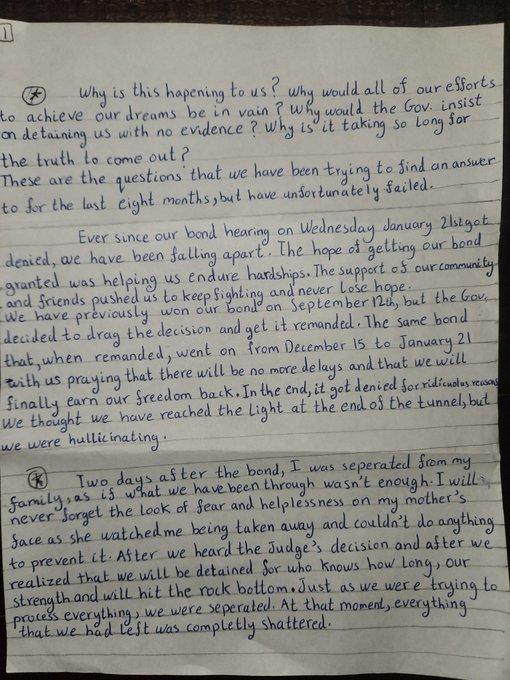 1
* Why is this hapening to us? Why would all of our efforts
to achieve our dreams be in vain? Why would the Gov. insist
on detaining us with no evidence? Why is it taking so long for
the truth to come out?
These are the questions that we have been trying to find an answer
to for the last eight months, but have unfortunately failed.
Ever since our bond hearing on Wednesday January 21st got
denied, we have been falling apart. The hope of getting our bond
granted was helping us endure hardships. The support of our community
and friends pushed us to keep fighting and never lose hope.
We have previously won our bond on September 12th, but the Gov.
decided to drag the decision and get it remanded. The same bond
that, when remanded, went on from December 15 to January 21
with us praying that there will be no more delays and that we will
finally earn our freedom back. In the end, it got denied for ridiculas reasons
We thought we have reached the Light at the end of the tunnel, but
we were hullicinating.
* Two days after the bond, I was seperated from my
family, as if what we have been through wasn't enough. I will
never forget the look of fear and helplessness on my mother's
face as she watched me being taken away and couldn't do anything
to prevent it. After we heard the Judge's decision and after we
realized that we will be detained for who knows how long, our
strength and will hit the rock bottom. Just as we were trying to
process everything, we were seperated. At that moment, everything
that we had left was completly shattered.